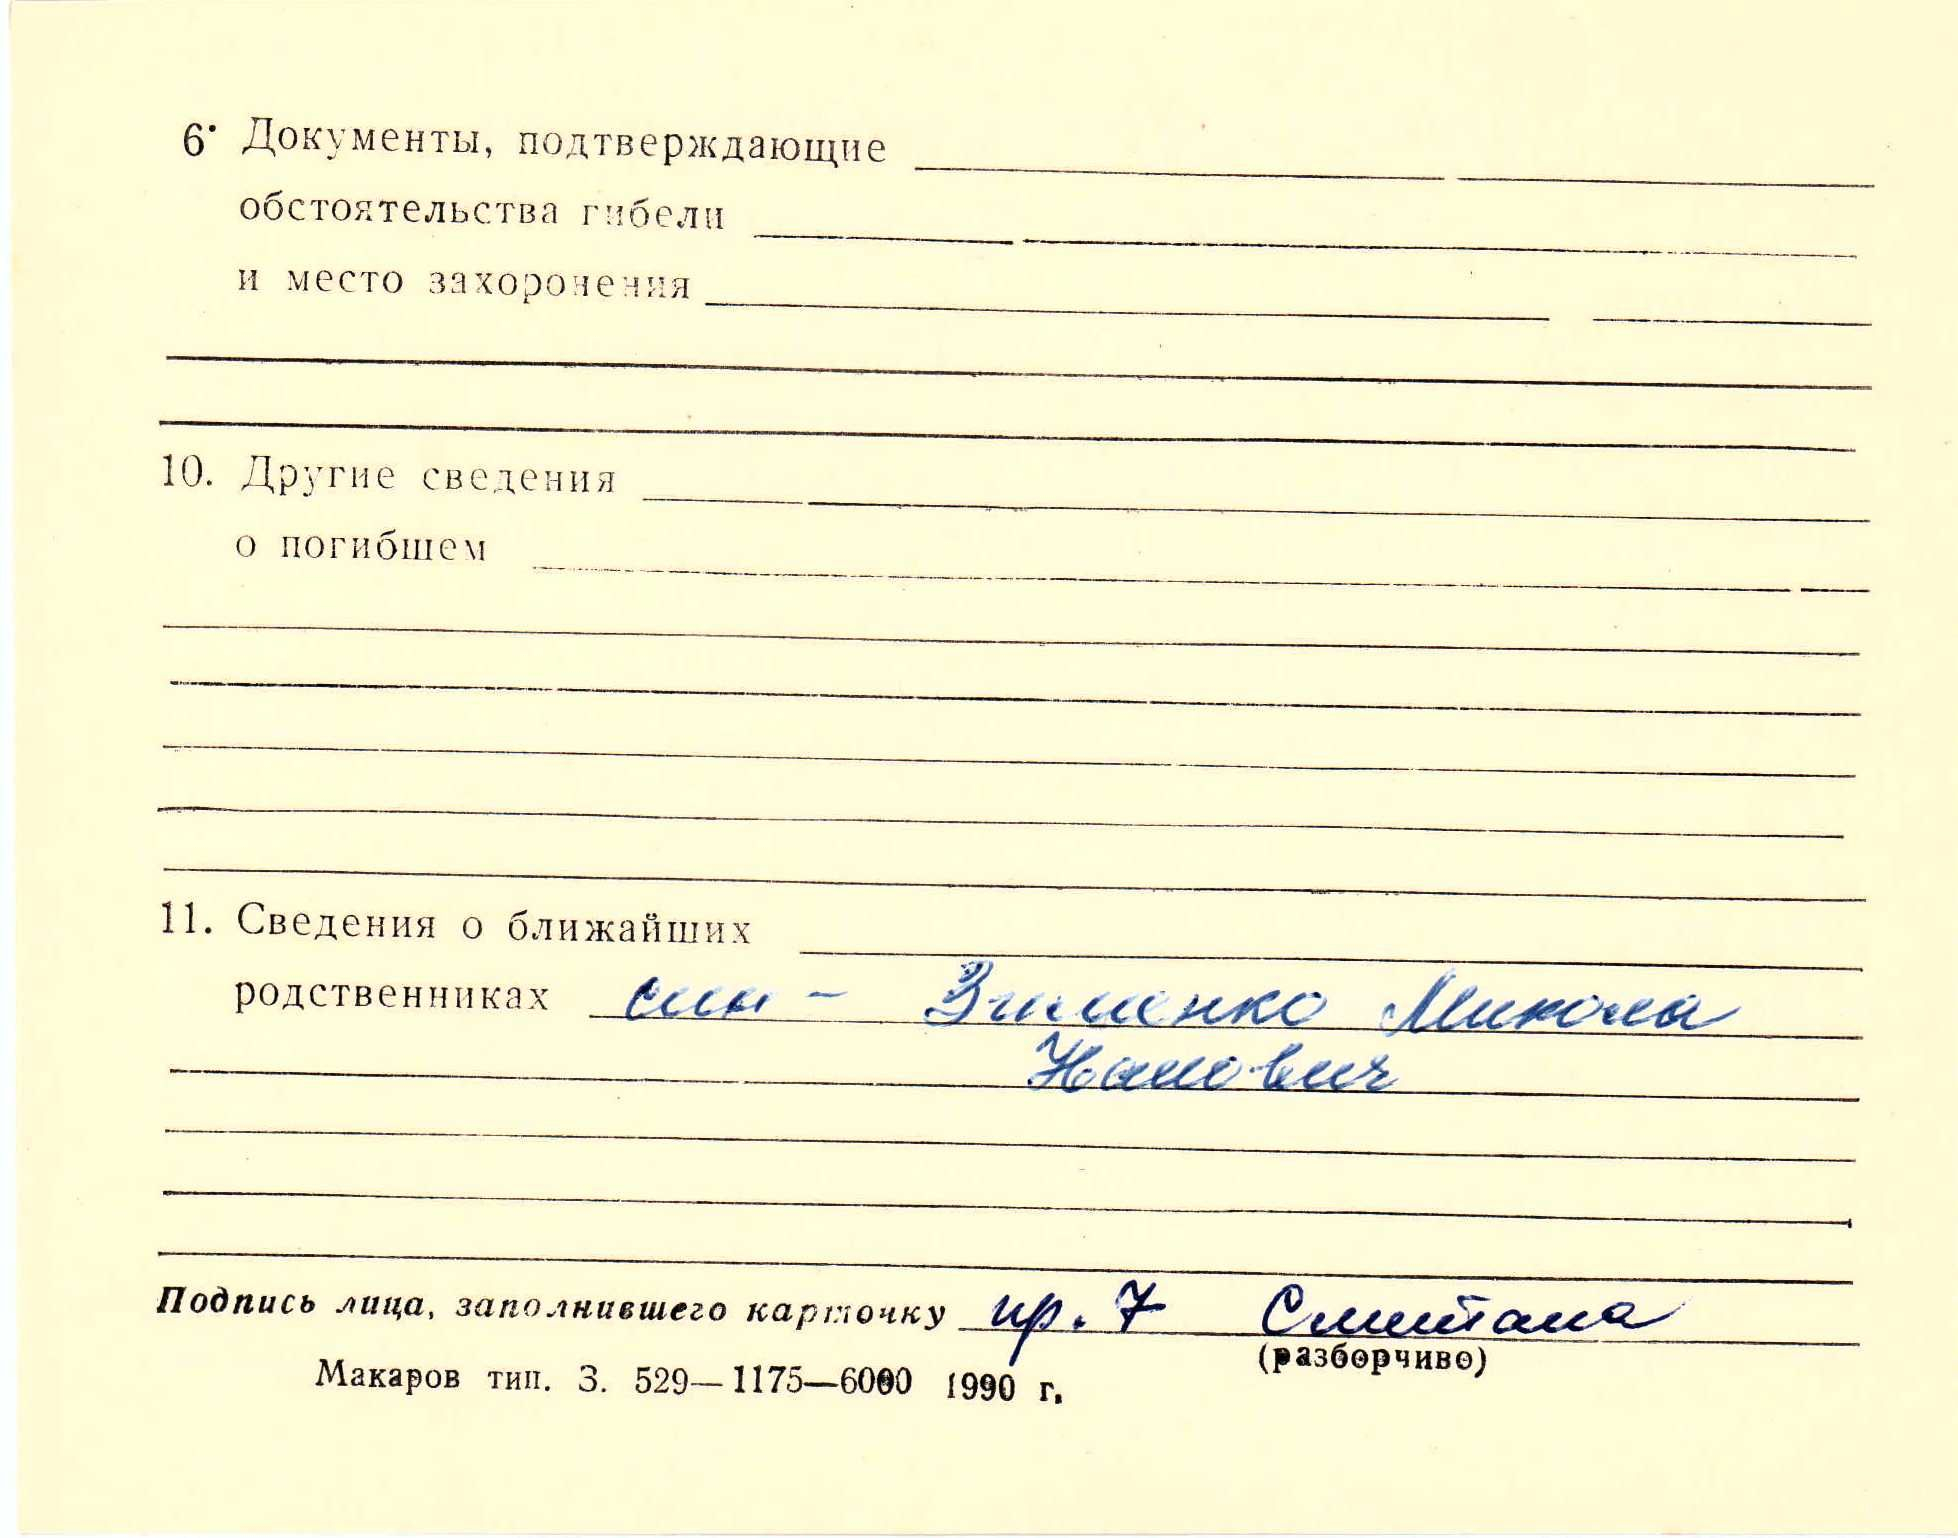 6. Документы, подтверждающие
обстоятельства гибели
и место захоронения
10. Другие сведения
о погибшем
11. Сведения о ближайших
родственниках син - Зименко Микола
Подпись лица, заполнившего карточку пр. 7
(разборчиво)
Макаров тип. З. 529—1175—6000 1990 г.